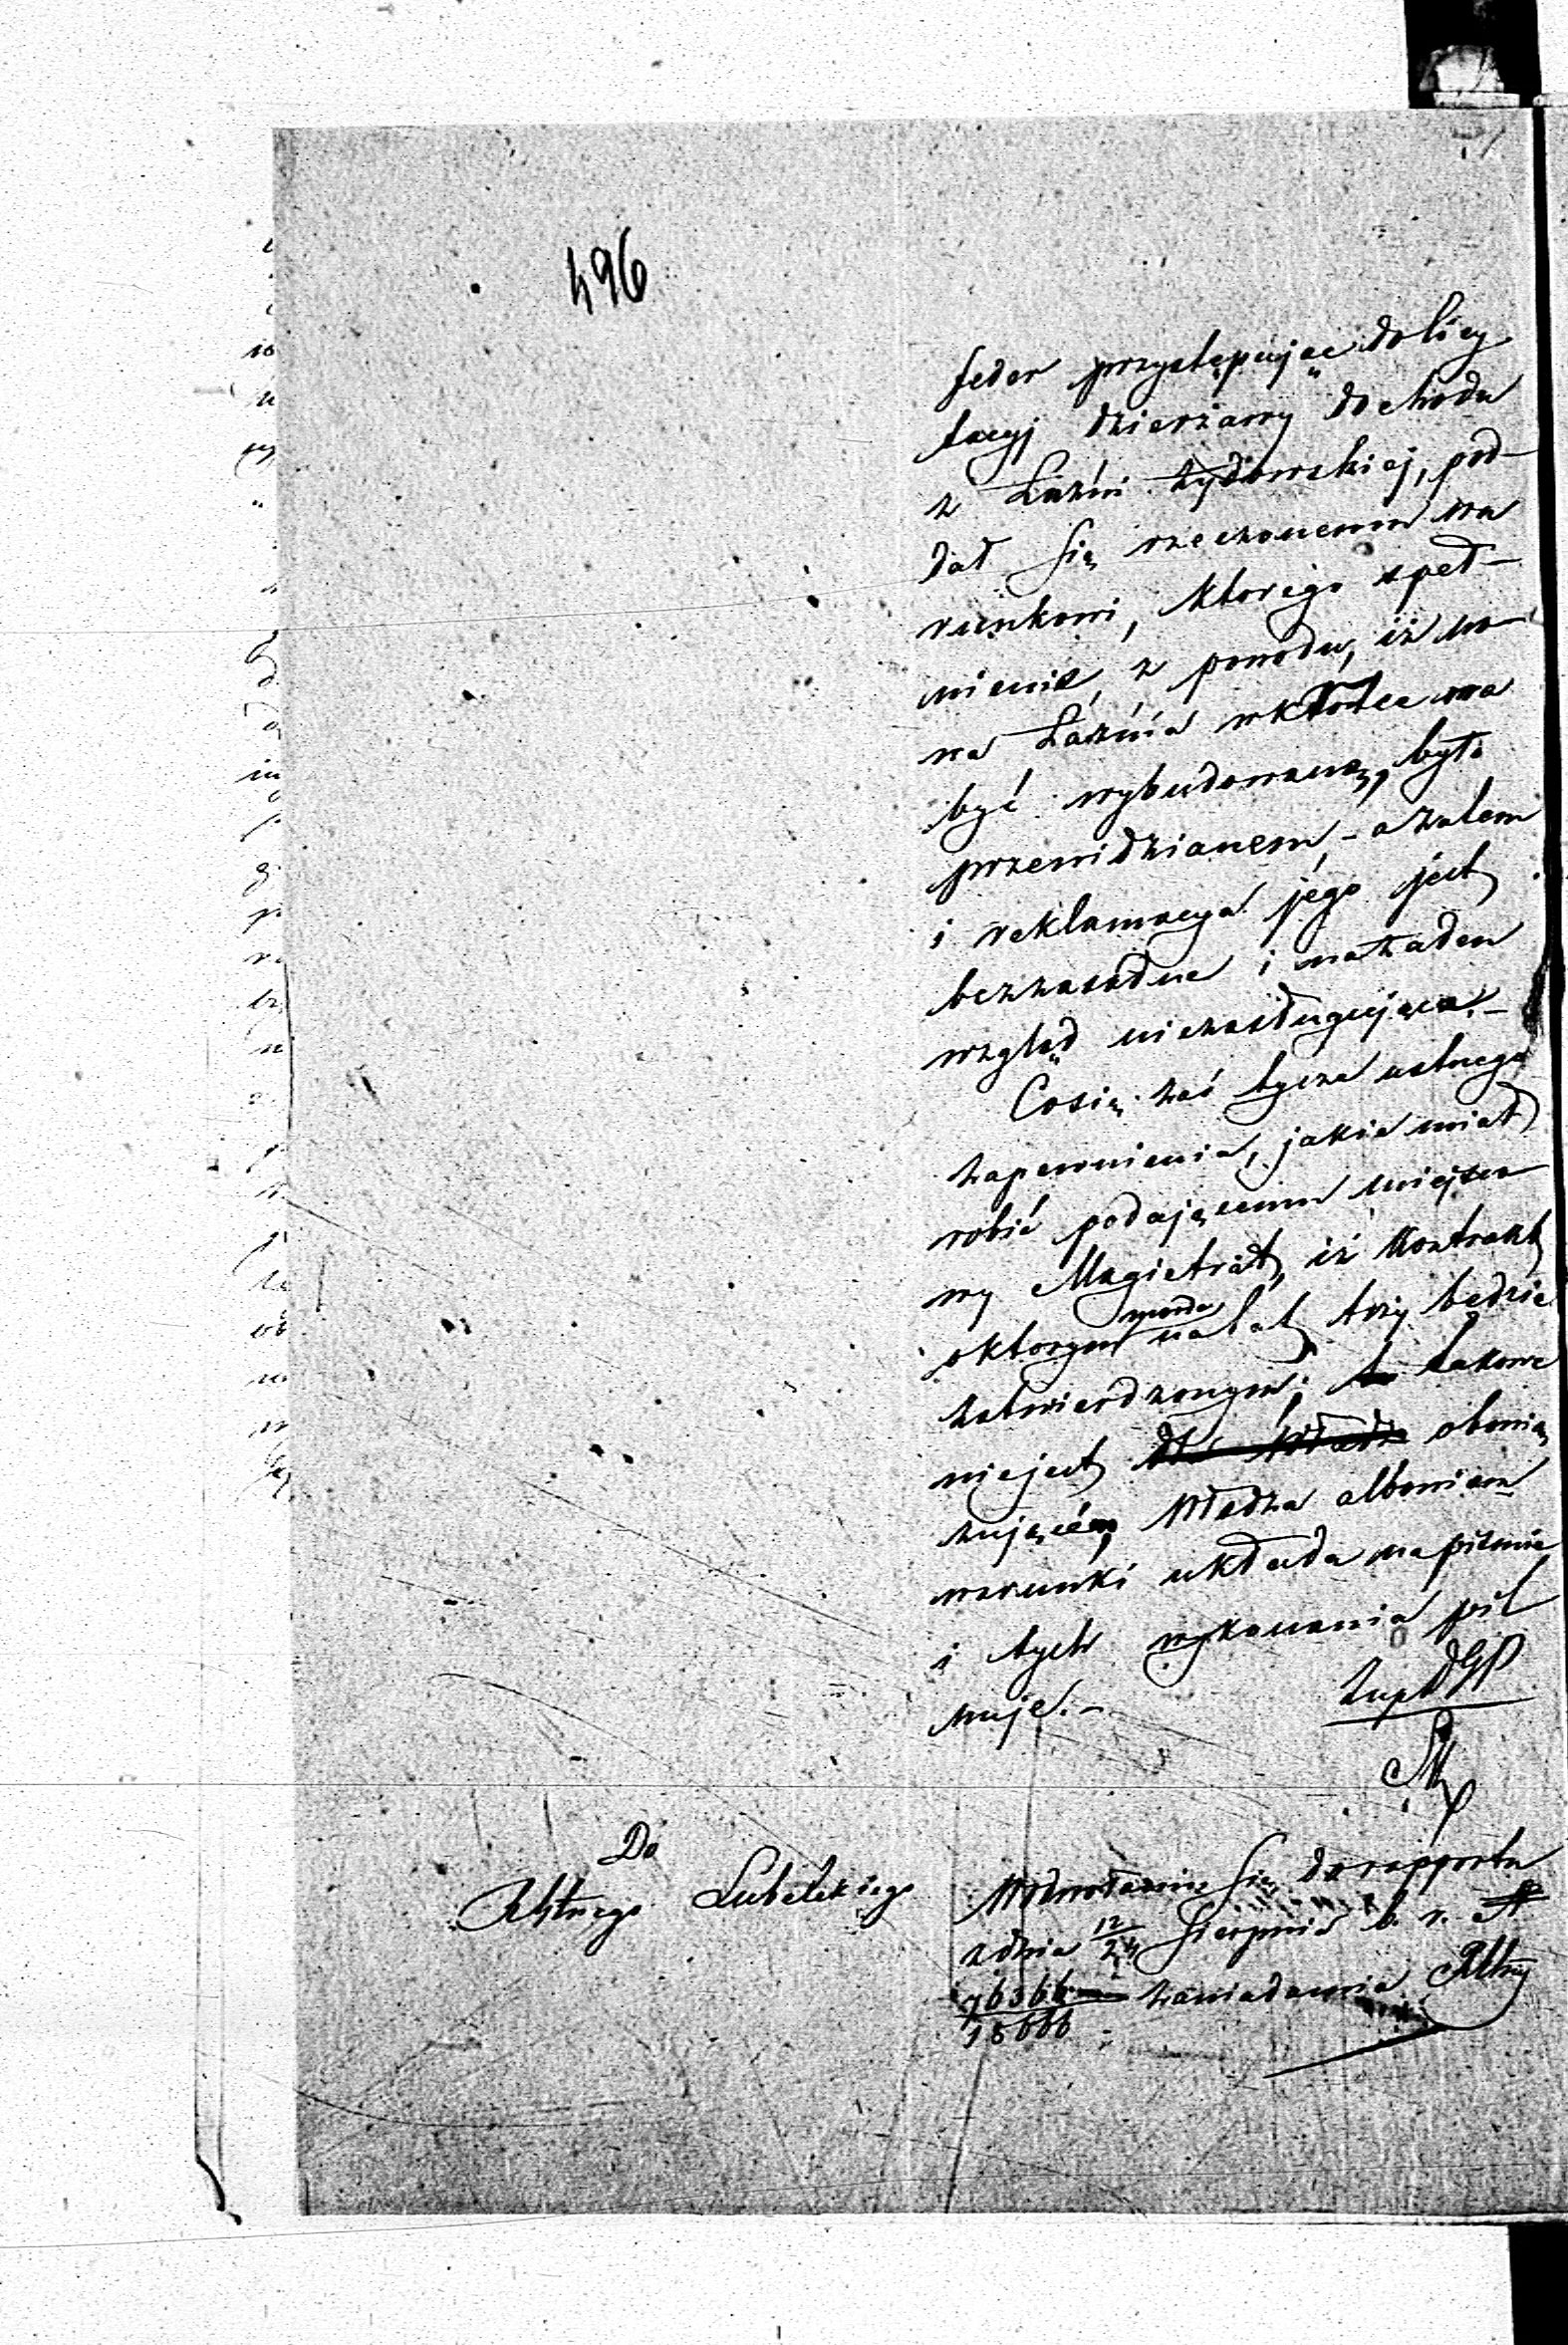 496
feder przystępując do licy
tacyj dzierżawy dochodu
z Łaźni Żydowskiej, pod-
dał się rzeczonemu wa
runkowi, którego speł-
nienie, z powodu, iż no
wa Łaźnia wkrótce ma
być wybudowaną, było
przewidzianem, - a zatem
i reklamacya jego jest
bezzasadna i na żaden
wzgląd niezasługująca. -
Co się zaś tycze ustnego
zapewnienia, jakie miał
robić podającemu miejsco
wy Magistrat, iż Kontrakt
o którym mowa na lat trzy będzie
zatwierdzonym; takowe
niejest obowią
zującém, Władza albowiem
warunki układa na piśmie
i tych wykonania pil
nuje. -
Do
Lubelskiego
Odwołanie Się do rapportu
z dnia 12/24 Sierpnia b. r. N
76366/18666 zawiadamia